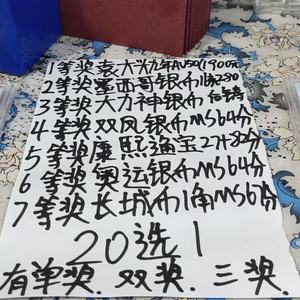 1等奖袁大头九年AU50 1900元
2等奖墨西哥银币
3等奖大力神银币
4等奖双凤银币MS64分
5等奖康熙通宝27+82分
6等奖奥运银币MS64分
7等奖长城币1角MS67分
20选1
有单奖.双奖.三奖.